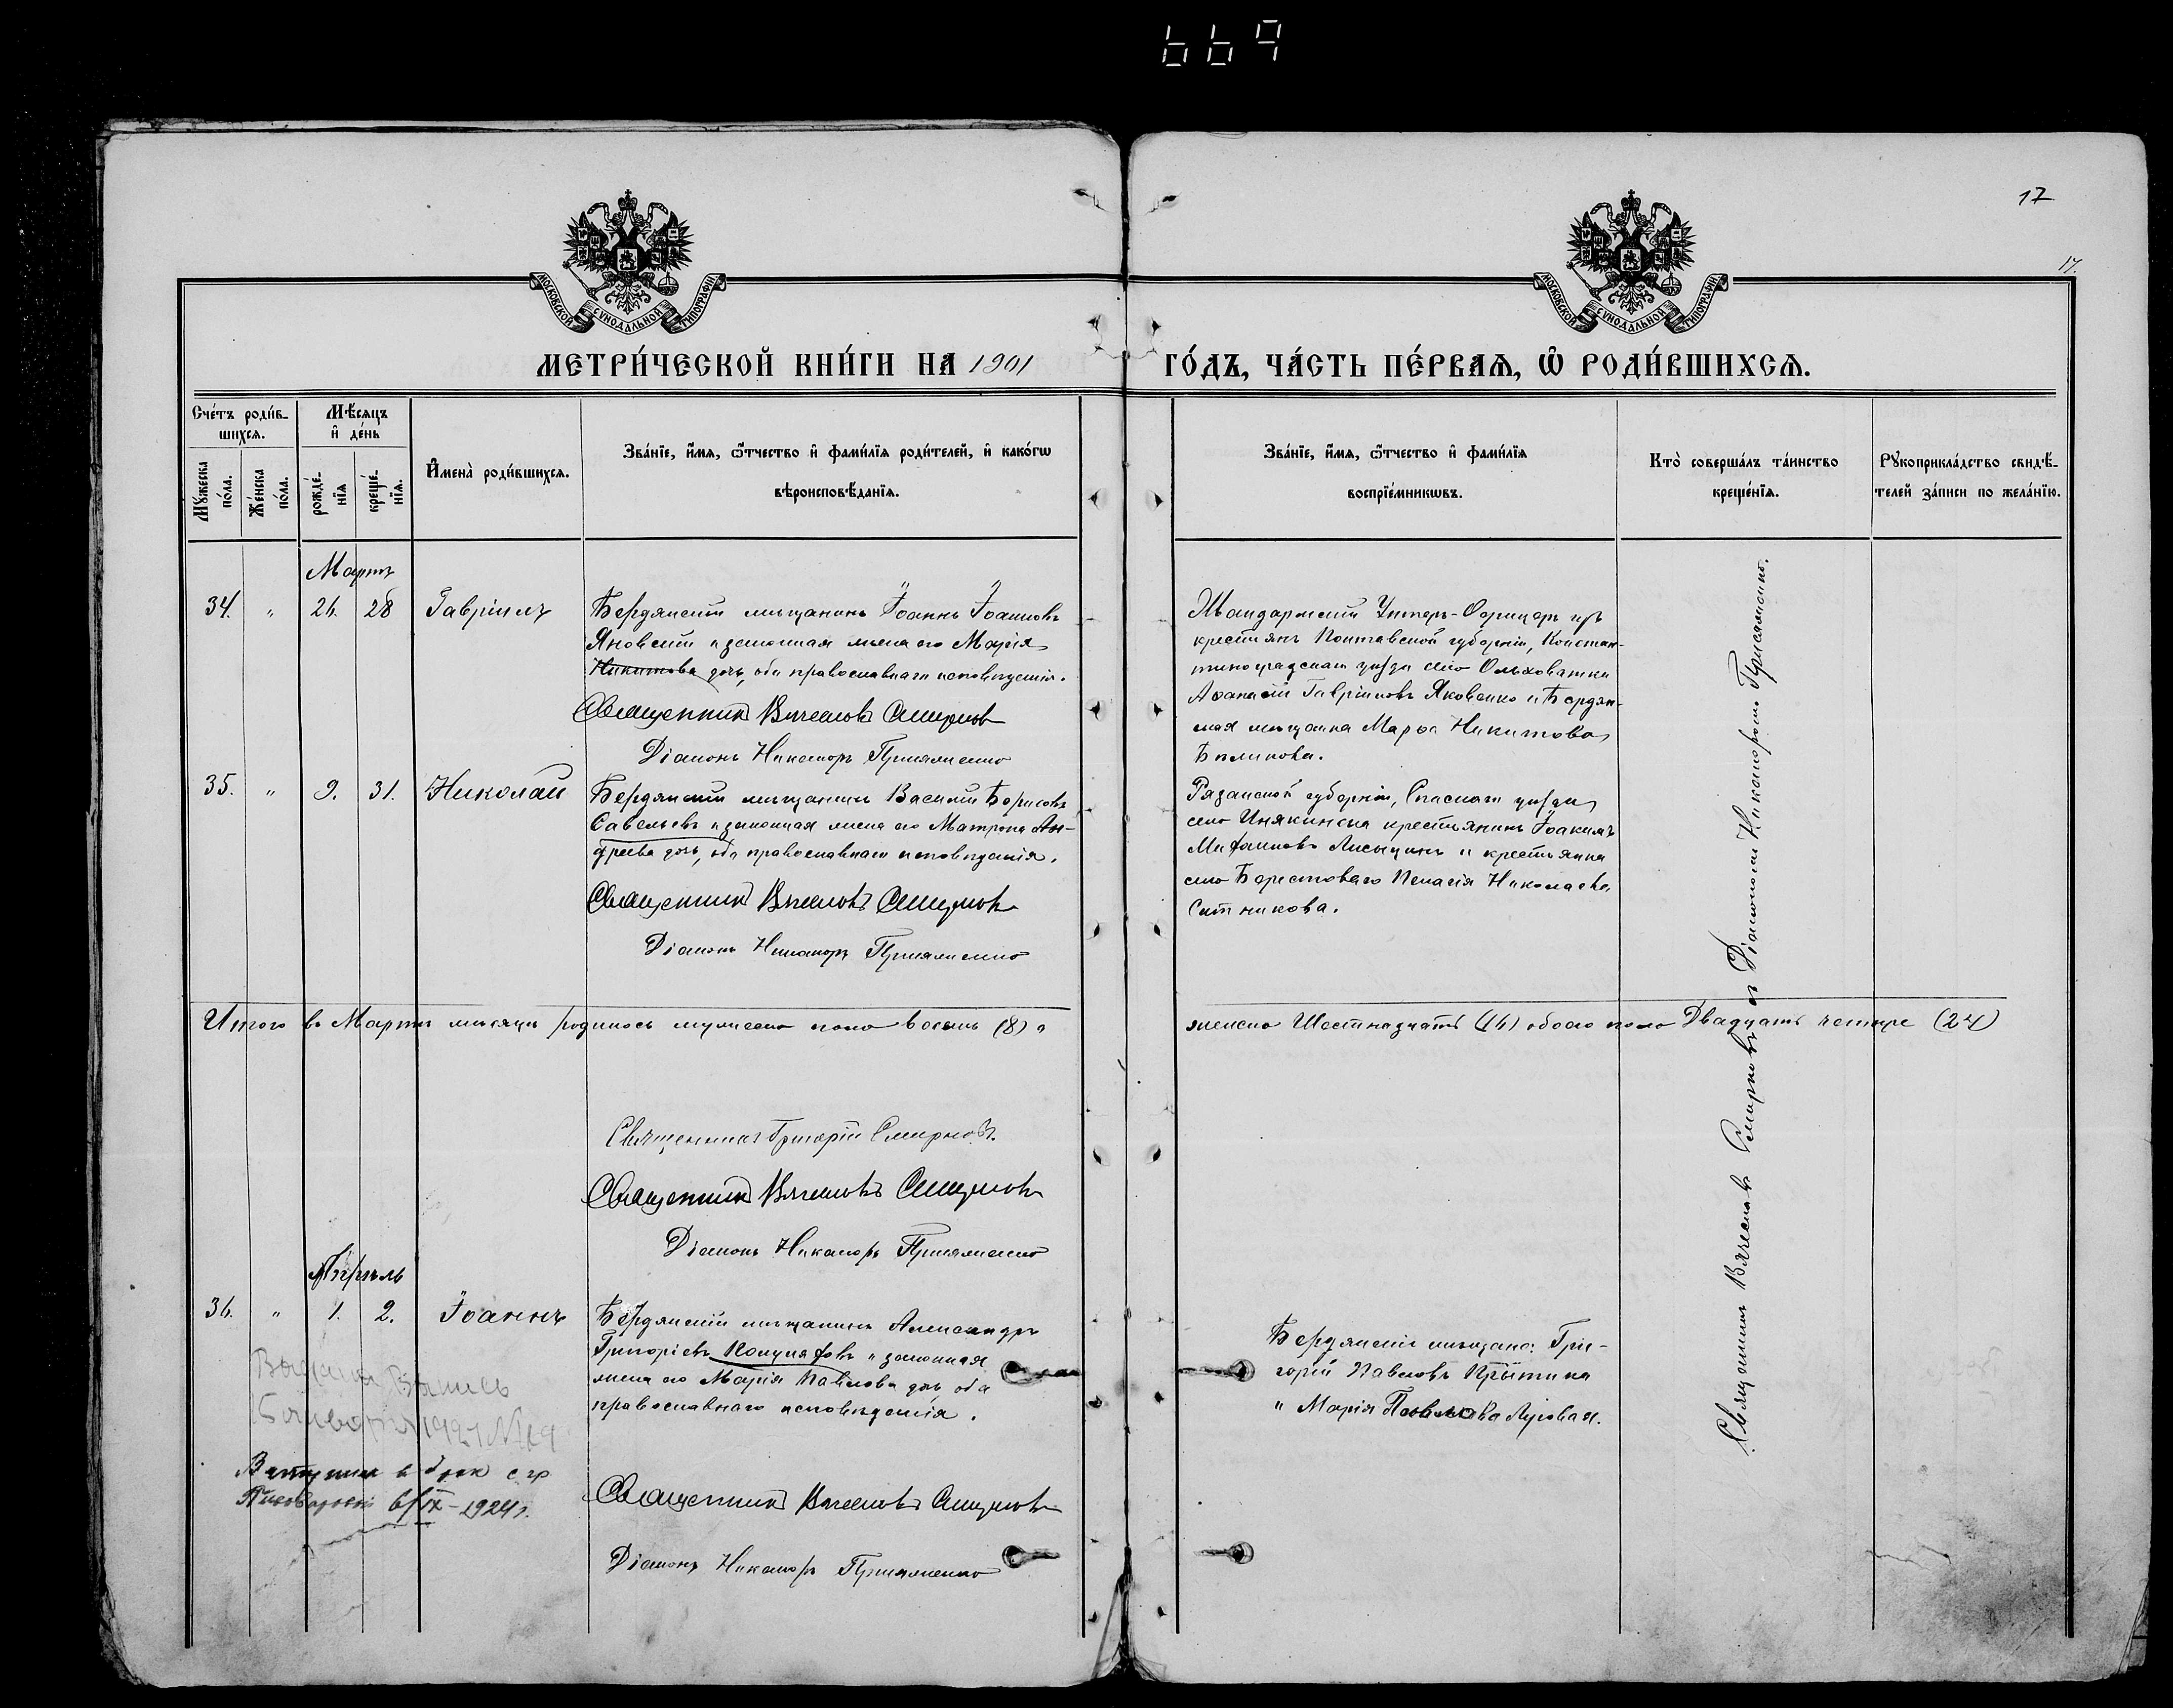 669
17
17.
МОСКОВСКОЙ СѴНОДАЛЬНОЙ ТИПОГРАФІИ
МОСКОВСКОЙ СѴНОДАЛЬНОЙ ТИПОГРАФІИ
МЕТРИ́ЧЕСКОЙ КНИ́ГИ НА 1901 ГО́ДЪ, ЧА́СТЬ ПЕ́РВАѦ, Ѡ҆ РОДИ́ВШИХСѦ.
Сче́тъ роди́в-
шихсѧ.
Мѣ́сяцъ
и҆ де́нь
Мꙋ́жеска по́ла.
Же́нска по́ла.
рожде́-нїѧ
креще́-нїѧ.
И҆мена̀ роди́вшихсѧ.
Зва́нїе, и҆́мѧ, ѻ҆́тчество и҆ фами́лїѧ роди́телей, и҆ како́гѡ
вѣроисповѣ́данїѧ.
Зва́нїе, и҆́мѧ, ѻ҆́тчество и҆ фами́лїѧ
воспрїе́мникѡвъ.
Кто̀ соверша́лъ та́инство
креще́нїѧ.
Рꙋкоприкла́дство свидѣ́-
телей за́писи по жела́нїю.
Мартъ
34. " 26. 28 Гавріилъ
Бердянскій мѣщанинъ Іоаннъ Іоанновъ
Яновскій и законная жена его Марія
Никитова дочь, оба православнаго исповѣданія.
Священникъ Вячеславъ Смирновъ
Діаконъ Никаноръ Присяженко
Жандармскій Унтеръ-Офицеръ изъ
крестьянъ Полтавской губерніи, Констан-
тиноградскаго уѣзда село Ольховатки
Аѳанасій Гавріиловъ Яковенко и Бердян-
ская мѣщанка Марѳа Никитова
Бѣликова.
35. " 9. 31. Николай
Бердянскій мѣщанинъ Василій Борисовъ
Савельевъ и законная жена его Матрона Ан-
дреева дочь, оба православнаго исповѣданія.
Священникъ Вячеславъ Смирновъ
Діаконъ Никаноръ Присяженко
Рязанской губерніи, Спасскаго уѣзда
село Инякинска крестьянинъ Іоакимъ
Лисицинъ и крестьянка
село Берестоваго Пелагія Николаева
Ситникова.
Итого въ Мартѣ мѣсяцѣ родилось мужеско пола восемь (8) и женско Шестнадцать (16) обоего пола Двадцать четыре (24)
Священникъ Григорій Смирновъ.
Священникъ Вячеславъ Смирновъ
Діаконъ Никаноръ Присяженко
Апрѣль
36. " 1. 2. Іоаннъ
Бердянскій мѣщанинъ Александръ
Григоріевъ и законная
жена его Марія Павлова дочь оба
православнаго исповѣданія.
Священникъ Вячеславъ Смирновъ
Діаконъ Никаноръ Присяженко
Бердянскіе мѣщане: Гри-
горій Павловъ
и Марія Павлова Луговая.
Выпись
1921 №
Вступил в брак с гр
6/IX-1924г.
Священникъ Вячеславъ Смирновъ съ Діакономъ Никаноромъ Присяженко.